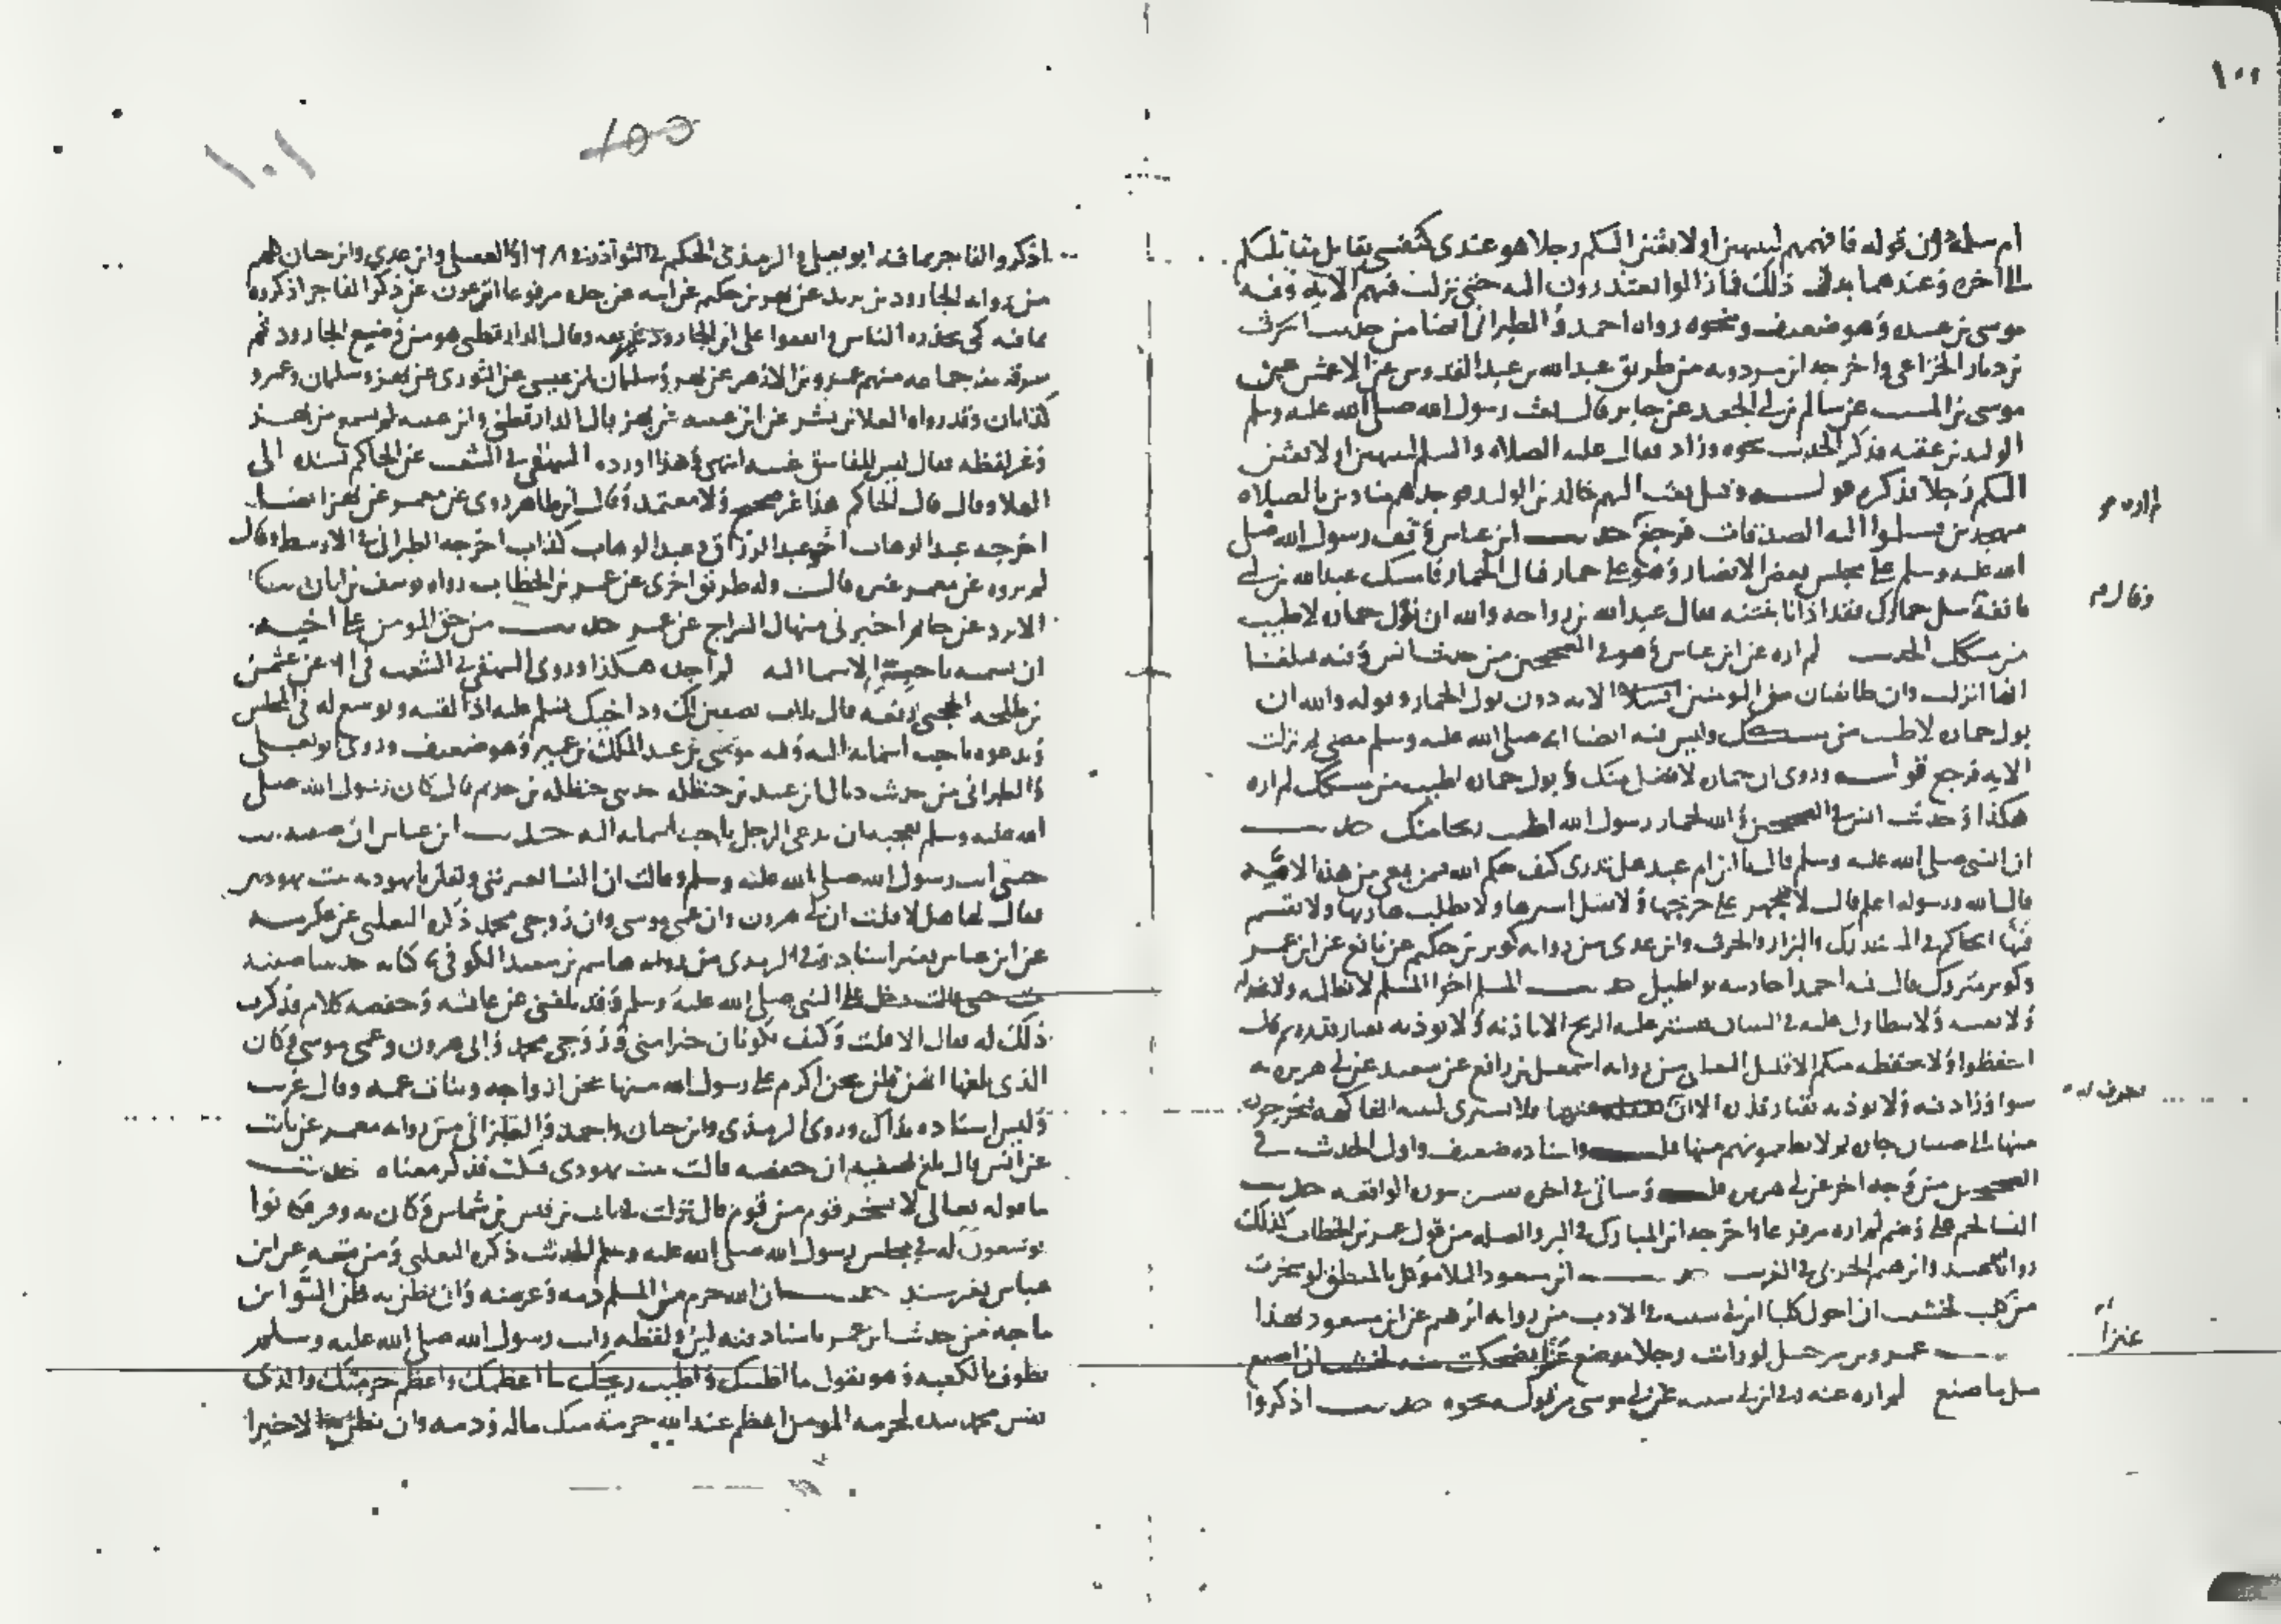 ١٠٠
ام سلمة دون قوله فاتهمهم لتنتهين او لابعثن اليكم رجلا هو عندي كنفسي يقاتل مقاتلتكم
الى اخره وعندهما بدل ذلك فما زالوا يعتذرون اليه حتى نزلت فيهم الاية وفيه
موسى بن عبيدة وهو ضعيف ونحوه رواه احمد والطبراني ايضا من حديث الحرث
بن ضرار الخزاعي واخرجه ابن مردويه من طريق عبد الله بن عبد القدوس عن الاعمش عن
موسى بن المسيب عن سالم بن ابي الجعد عن جابر قال بعث رسول الله صلى الله عليه وسلم
الوليد بن عقبة فذكر الحديث نحوه وزاد فقال عليه الصلاة والسلم لتنتهين او لابعثن
اليكم رجلا فذكره قوله وقيل بعث اليهم خالد بن الوليد فوجدهم منادين بالصلاة
متهجدين فسلموا اليه الصدقات فرجع حديث ابن عباس وقف رسول الله صلى
الله عليه وسلم على مجلس بعض الانصار وهو على حمار فبال الحمار فامسك عبد الله بن ابي
بانفه خل حمارك فقد اذانا بنتنه فقال عبد الله بن رواحة والله ان بول حماره لاطيب
من مسكك الحديث لم اره عن ابن عباس وهو في الصحيحين من حديث انس وفيه فبلغنا
انها انزلت وان طائفتان من المومنين اقتتلوا الاية دون بول الحمار وقوله والله ان
بول حماره لاطيب من مسكك وليس فيه ايضا انه صلى الله عليه وسلم مضى ثم نزلت
الاية فرجع قوله وروى ان حماره لافضل منك وبول حماره اطيب من مسكك لم اره
هكذا وحديث انس في الصحيحين والله لحمار رسول الله اطيب ريحا منك حديث
ان النبي صلى الله عليه وسلم قال يا ابن ام عبد هل تدري كيف حكم الله فيمن بغى من هذه الامة
قال الله ورسوله اعلم قال لا يجهز على جريحها ولا يقتل اسيرها ولا يطلب هاربها ولا يقسم
فيها الحاكم في المستدرك والبزار والحرث وابن عدي من رواية كوثر بن حكيم عن نافع عن ابن عمر
وكوثر متروك قال فيه احمد احاديثه بواطيل حديث المسلم اخو المسلم لا يظلمه ولا يخذله
ولا يعيبه ولا يتطاول عليه في البنيان فيستر عليه الريح الا باذنه ولا يوذيه بقتار قدره ثم قال
احفظوا ولا يحفظه منكم الا قليل الثعلبي من رواية اسمعيل بن رافع عن سعيد عن ابي هريرة به
سوا وزاد فيه ولا يوذيه بقتار قدره الا ان يغرف له منها ولا يشتري لبنيه الفاكهة فيخرجون
منها الى صبيان جاره ثم لا يطعمونهم منها واسناده ضعيف واول الحديث في
الصحيح من وجه اخر عن ابي هريرة وسياتي في اخر تفسير سورة الواقعة حديث
النسا لحم على وضم لم اره مرفوعا واخرجه ابن المبارك في البر والصلة من قول عمر بن الخطاب كذلك
رواه ابو عبيد وابرهيم الحربي في الغريب حديث ابن مسعود البلا موكل بالمنطق لو سخرت
من كلب لخشيت ان احول كلبا ابن ابي شيبة في الادب من رواية ابرهيم عن ابن مسعود بهذا
حديث عمرو بن شرحبيل لو رايت رجلا يرضع عنزا فضحكت منه لخشيت ان اصنع
مثل ما صنع لم اره عنه وفي ابن ابي شيبة عن ابي موسى من قوله نحوه حديث اذكروا
وقال لم
يغرف له
عنزا
١٠١
100
اذكروا الفاجر بما فيه ابو يعلى والترمذي الحكيم في النوادر في ١٦٨ والعقيلي وابن عدي وابن حبان كلهم
من رواية الجارود بن يزيد عن بهز بن حكيم عن ابيه عن جده مرفوعا اترعون عن ذكر الفاجر اذكروه
بما فيه كي يحذره الناس واتفقوا على ان الجارود غير ثقة وقال الدارقطني هو من وضع الجارود ثم
سرقه منه جماعة منهم عمرو بن الازهر عن بهز وسليمان بن عيسى عن الثوري عن بهز وسليمان وعمرو
كذابان وقد رواه العلا بن بشر عن ابن عيينة عن بهز قال الدارقطني وابن عيينة لم يسمع من بهز
وغير لفظه فقال ليس للفاسق غيبة انتهى وهذا اورده البيهقي في الشعب عن الحاكم بسنده الى
العلا وقال قال الحاكم هذا غير صحيح ولا معتمد وقال ابن طاهر روي عن معمر عن بهز ايضا
اخرجه عبد الوهاب اخو عبد الرزاق وعبد الوهاب كذاب اخرجه الطبراني في الاوسط وقال
لم يروه عن معمر غيره قالت وله طريق اخرى عن عمر بن الخطاب رواه يوسف بن ابان ثنا
الابرد بن حاتم اخبرني منهال السراج عن عمر حديث من حق المومن على اخيه
ان يسميه باحب الاسما اليه لم اجده هكذا وروى البيهقي في الشعب في ٦١ عن عثمن
بن طلحة الحجبي رفعه قال ثلاث يصفين لك ود اخيك تسلم عليه اذا لقيته وتوسع له في المجلس
وتدعوه باحب اسمايه اليه وفيه موسى بن عبد الملك بن عمير وهو ضعيف وروى ابو يعلى
والطبراني من حديث ذيال بن عبيد بن حنظلة حدثني حنظلة بن حذيم قال كان رسول الله صلى
الله عليه وسلم يعجبه ان يدعى الرجل باحب اسمايه اليه حديث ابن عباس ان صفية بنت
حيي اتت رسول الله صلى الله عليه وسلم وقالت ان النسا يعيرنني ويقلن يا يهودية بنت يهوديين
فقال لها هلا قلت ان ابي هرون وان عمي موسى وان زوجي محمد ذكره الثعلبي عن عكرمة
عن ابن عباس بغير اسناد وفي الترمذي من رواية هاشم بن سعيد الكوفي ثنا كنانة حدثتنا صفية
بنت حيي قالت دخل علي النبي صلى الله عليه وسلم وقد بلغني عن عائشة وحفصة كلام فذكرت
ذلك له فقال الا قلت وكيف تكونان خيرا مني وزوجي محمد وابي هرون وعمي موسى وكان
الذي بلغها انهن قلن نحن اكرم على رسول الله منها نحن ازواجه وبنات عمه وقال غريب
وليس اسناده بذاك وروى الترمذي وابن حبان واحمد والطبراني من رواية معمر عن ثابت
عن انس قال بلغ صفية ان حفصة قالت بنت يهودي فبكت فذكر معناه حديث
ما قوله تعالى لا يسخر قوم من قوم قال نزلت في ثابت بن قيس بن شماس وكان به وقر فكانوا
يوسعون له في مجلس رسول الله صلى الله عليه وسلم الحديث ذكره الثعلبي ومن تبعه عن ابن
عباس بغير سند حديث ان الله حرم من المسلم دمه وعرضه وان يظن به ظن السو ابن
ماجه من حديث ابن عمر باسناد فيه لين ولفظه رايت رسول الله صلى الله عليه وسلم
يطوف بالكعبة وهو يقول ما اطيبك واطيب ريحك ما اعظمك واعظم حرمتك والذي
نفس محمد بيده لحرمة المومن اعظم عند الله حرمة منك ماله ودمه وان نظن به الا خيرا